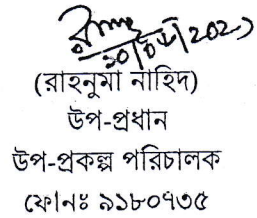 ৩০/০৮/2021
(রাহনুমা নাহিদ)
উপ-প্রধান
উপ-প্রকল্প পরিচালক
ফোনঃ ৯১৮০৭৩৫